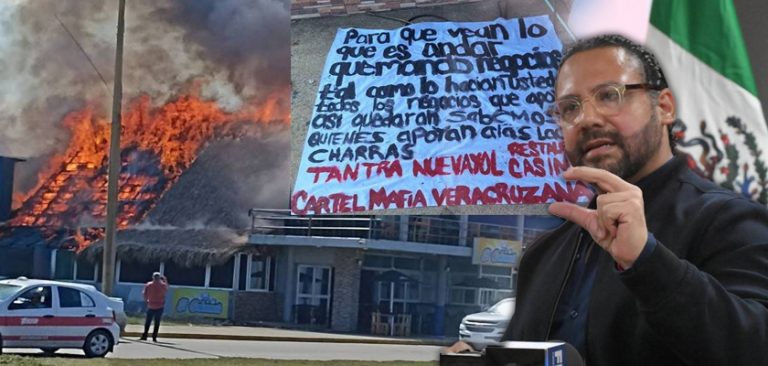 Para que vean lo
que es andar
quemando negocios
tal como lo hacian ustedes
todos los negocios que apo
asi quedaran sabemos
QUIENES apoyan alas lac
CHARRAS RESTAU
TANTRA NUEVAYOL CASIN
CARTEL MAFIA VERACRUZANA